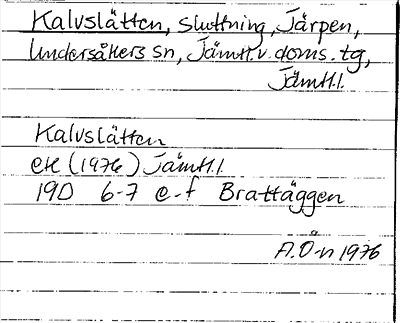 Kalvslätten, sluttning, Järpen,
Undersåkers sn, Jämtl.v.doms.tg,
Jämtl.l.
Kalvslätten
ek (1976) Jämtl.l
19D 6-7 e-f Brattäggen
A.Ö-n 1976